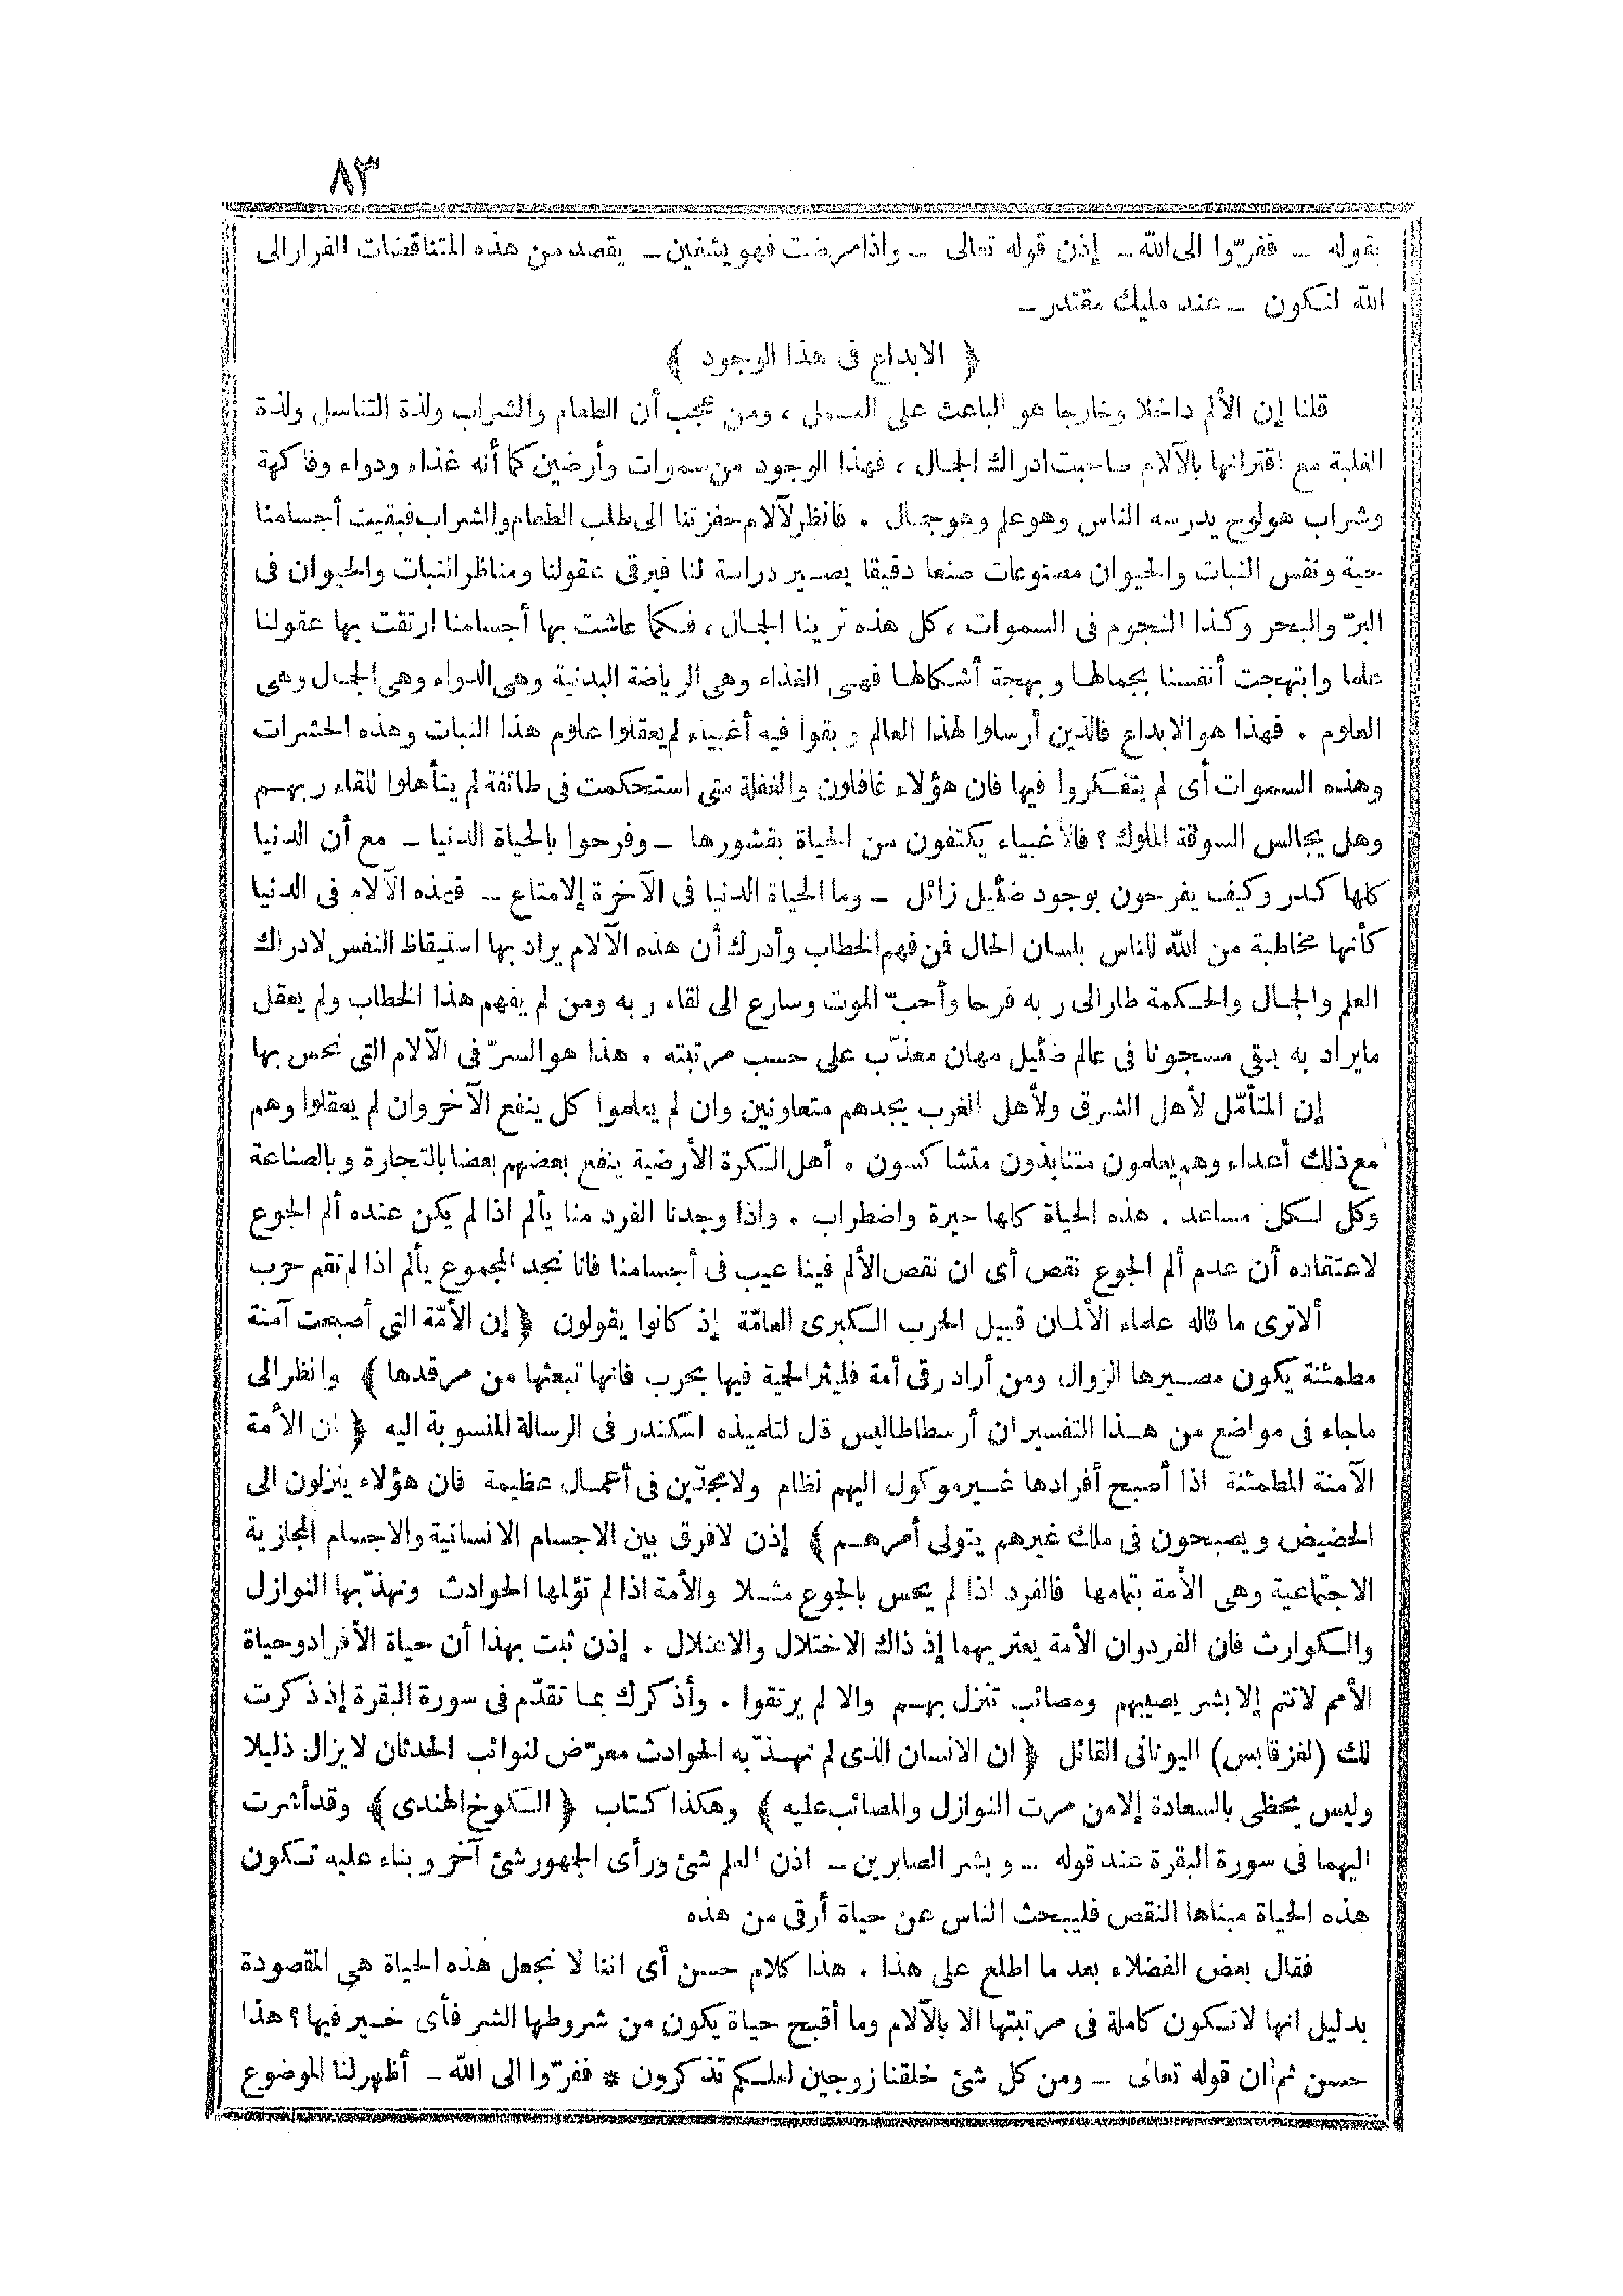 ٨٣
بقوله - ففرّوا الى الله - إذن قوله تعالى - واذا مرضت فهو يشفين - يقصد من هذه المتناقضات الفرار الى
الله لنكون - عند مليك مقتدر -
﴿ الابداع فى هذا الوجود ﴾
قلنا إن الألم داخلا وخارجا هو الباعث على العمل ، ومن عجب أن الطعام والشراب ولذة التناسل ولذة
الغلبة مع اقترانها بالآلام صاحبت ادراك الجمال ، فهذا الوجود من سموات وأرضين كما أنه غذاء ودواء وفاكهة
وشراب هو لوح يدرسه الناس وهو علم وهو جمال . فانظر لآلام حفزتنا الى طلب الطعام والشراب فبقيت أجسامنا
حية ونفس النبات والحيوان مصنوعات صنعا دقيقا يصير دراسة لنا فيرقى عقولنا ومناظر النبات والحيوان فى
البرّ والبحر وكذا النجوم فى السموات ، كل هذه ترينا الجمال ، فكما عاشت بها أجسامنا ارتقت بها عقولنا
علما وابتهجت أنفسنا بجمالها وبهجة أشكالها فهى الغذاء وهى الرياضة البدنية وهى الدواء وهى الجمال وهى
العلوم . فهذا هو الابداع فالذين أرسلوا لهذا العالم وبقوا فيه أغبياء لم يعقلوا علوم هذا النبات وهذه الحشرات
وهذه السموات أى لم يتفكروا فيها فان هؤلاء غافلون والغفلة متى استحكمت فى طائفة لم يتأهلوا للقاء ربهم
وهل يجالس السوقة الملوك ؟ فالأغبياء يكتفون من الحياة بقشورها - وفرحوا بالحياة الدنيا - مع أن الدنيا
كلها كدر وكيف يفرحون بوجود ضئيل زائل - وما الحياة الدنيا فى الآخرة إلا متاع - فهذه الآلام فى الدنيا
كأنها مخاطبة من الله للناس بلسان الحال فمن فهم الخطاب وأدرك أن هذه الآلام يراد بها استيقاظ النفس لادراك
العلم والجمال والحكمة طار الى ربه فرحا وأحبّ الموت وسارع الى لقاء ربه ومن لم يفهم هذا الخطاب ولم يعقل
مايراد به بقى مسجونا فى عالم ضئيل مهان معذّب على حسب مرتبته . هذا هو السرّ فى الآلام التى نحس بها
إن المتأمّل لأهل الشرق ولأهل الغرب يجدهم متعاونين وان لم يعلموا كل ينفع الآخر وان لم يعقلوا وهم
مع ذلك أعداء وهم يعلمون متنابذون متشاكسون . أهل الكرة الأرضية ينفع بعضهم بعضا بالتجارة وبالصناعة
وكل لكل مساعد . هذه الحياة كلها حيرة واضطراب . واذا وجدنا الفرد منا يألم اذا لم يكن عنده ألم الجوع
لاعتقاده أن عدم ألم الجوع نقص أى ان نقص الألم فينا عيب فى أجسامنا فانا نجد المجموع يألم اذا لم تقم حرب
ألا ترى ما قاله علماء الألمان قبيل الحرب الكبرى العامّة إذ كانوا يقولون ﴿ إن الأمّة التى أصبحت آمنة
مطمئنة يكون مصيرها الزوال ومن أراد رقى أمة فليثر الحمية فيها بحرب فانها تبعثها من مرقدها ﴾ وانظر الى
ماجاء فى مواضع من هذا التفسير ان أرسطاطاليس قال لتلميذه اسكندر فى الرسالة المنسوبة اليه ﴿ ان الأمة
الآمنة المطمئنة اذا أصبح أفرادها غير موكول اليهم نظام ولا مجدّين فى أعمال عظيمة فان هؤلاء ينزلون الى
الحضيض ويصبحون فى ملك غيرهم يتولى أمرهم ﴾ إذن لافرق بين الاجسام الانسانية والاجسام المجازية
الاجتماعية وهى الأمة بتمامها فالفرد اذا لم يحس بالجوع مثلا والأمة اذا لم تؤلمها الحوادث وتهذّبها النوازل
والكوارث فان الفرد وان الأمة يعتريهما إذ ذاك الاختلال والاعتلال . إذن ثبت بهذا أن حياة الأفراد وحياة
الأمم لاتتم إلا بشر يصيبهم ومصائب تنزل بهم والا لم يرتقوا . وأذكرك بما تقدّم فى سورة البقرة إذ ذكرت
لك (لغز قابس) اليونانى القائل ﴿ ان الانسان الذى لم تهذّبه الحوادث معرّض لنوائب الحدثان لايزال ذليلا
وليس يحظى بالسعادة إلا من مرت النوازل والمصائب عليه ﴾ وهكذا كتاب ﴿ الكوخ الهندى ﴾ وقد أشرت
اليهما فى سورة البقرة عند قوله - وبشر الصابرين - اذن العلم شئ ورأى الجمهور شئ آخر وبناء عليه تكون
هذه الحياة مبناها النقص فليبحث الناس عن حياة أرقى من هذه
فقال بعض الفضلاء بعد ما اطلع على هذا . هذا كلام حسن أى اننا لا نجعل هذه الحياة هى المقصودة
بدليل انها لاتكون كاملة فى مرتبتها الا بالآلام وما أقبح حياة يكون من شروطها الشر فأى خير فيها ؟ هذا
حسن ثم ان قوله تعالى - ومن كل شئ خلقنا زوجين لعلكم تذكرون * ففرّوا الى الله - أظهر لنا الموضوع